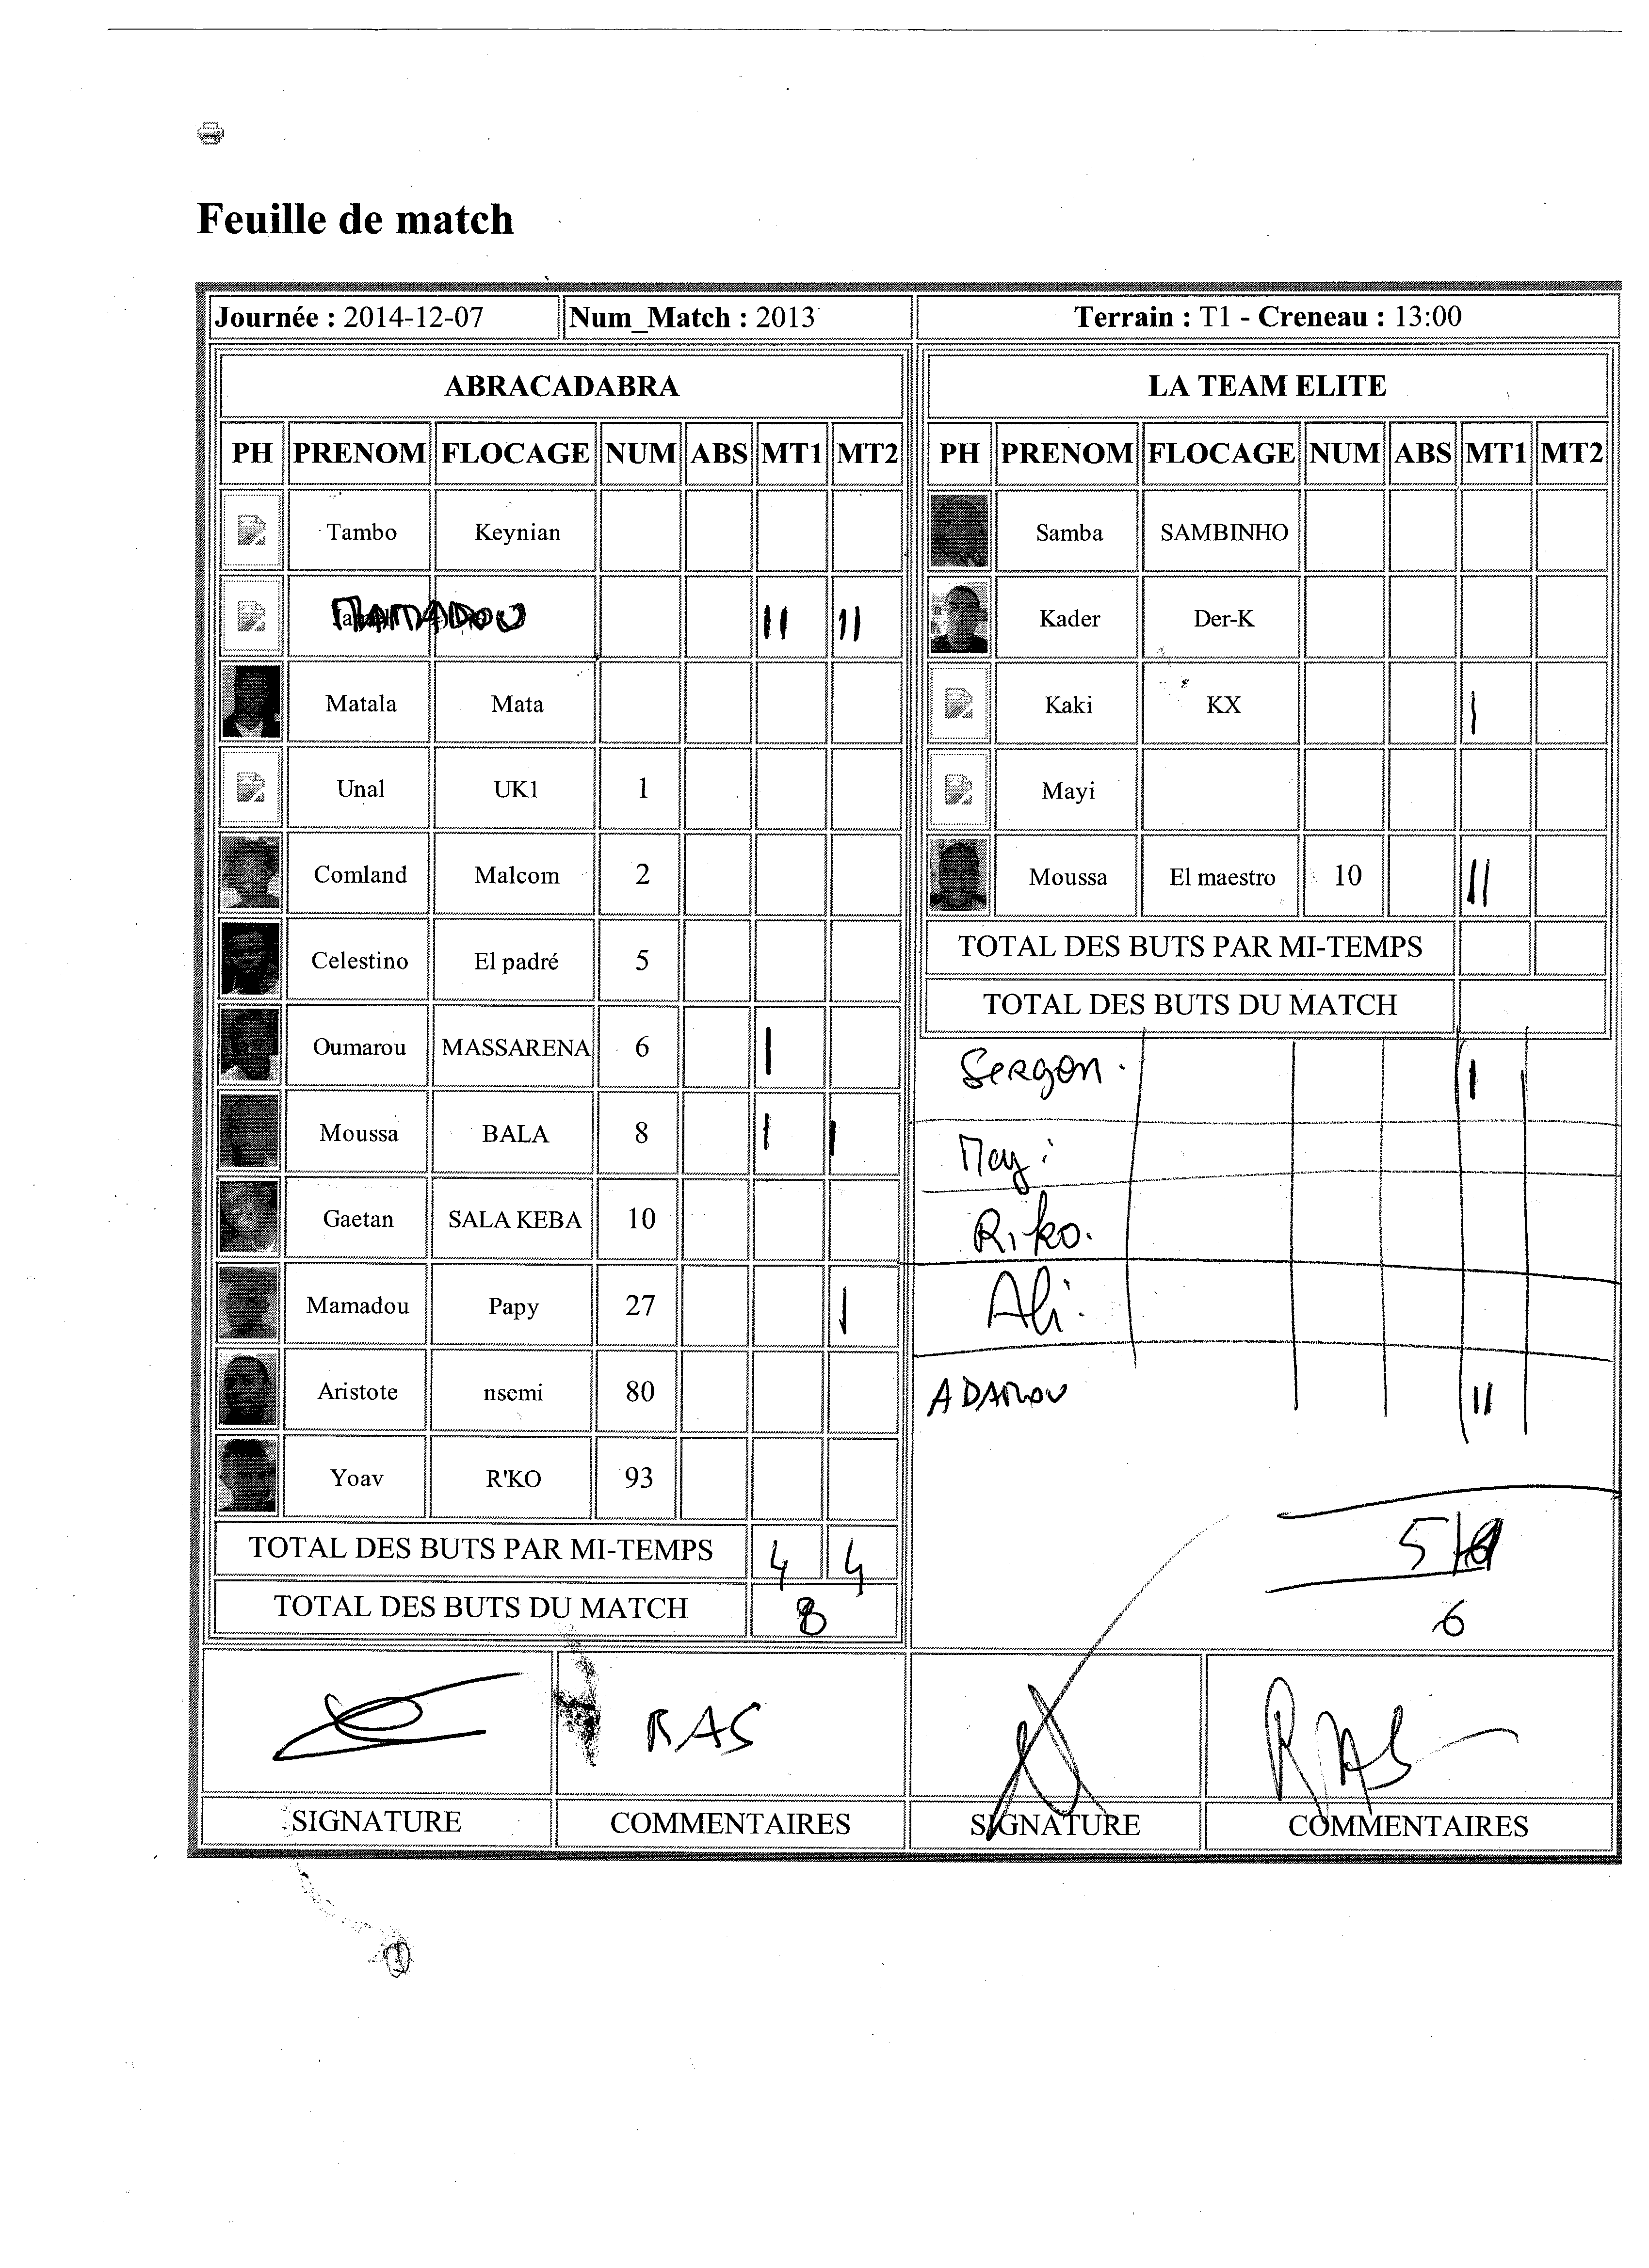 Feuille de match
Journée : 2014-12-07 Num_Match : 2013 Terrain : T1 - Creneau : 13:00
ABRACADABRA
PH PRENOM FLOCAGE NUM ABS MT1 MT2
Tambo Keynian
MAMADOU II II
Matala Mata
Unal UK1 1
Comland Malcom 2
Celestino El padré 5
Oumarou MASSARENA 6 I
Moussa BALA 8 I I
Gaetan SALA KEBA 10
Mamadou Papy 27 I
Aristote nsemi 80
Yoav R'KO 93
TOTAL DES BUTS PAR MI-TEMPS 4 4
TOTAL DES BUTS DU MATCH 8
LA TEAM ELITE
PH PRENOM FLOCAGE NUM ABS MT1 MT2
Samba SAMBINHO
Kader Der-K
Kaki KX I
Mayi
Moussa El maestro 10 II
TOTAL DES BUTS PAR MI-TEMPS
TOTAL DES BUTS DU MATCH
Sergen. I
Riko.
Ali.
ADAMOU II
5/
6
RAS
RAS
SIGNATURE COMMENTAIRES SIGNATURE COMMENTAIRES